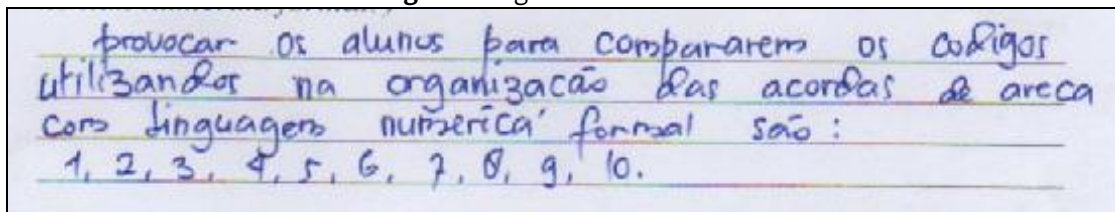 provocar os alunos para compararem os codigos
utilizandos na organização das acordas de areca
com linguagem numerica formal são:
1, 2, 3, 4, 5, 6, 7, 8, 9, 10.